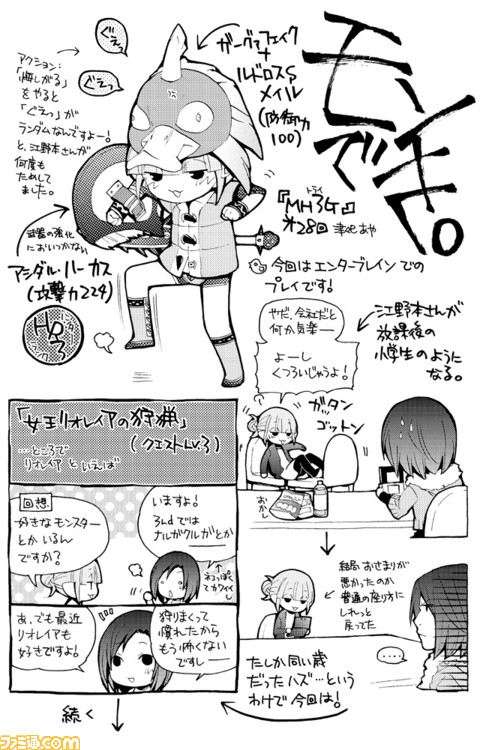 モンチで。
『MH3Gトライ』
オ28回 津々巳あや
今回はエンターブレインでの
プレイです!
ぐえっ
ぐえっ
アクション:
「悔しがる」
をやると
「ぐえっ」が
ランダムなんですよー!
と、江野本さんが
何度も
ためして
ました。
ガーグァフェイク
+
ルドロスS
メイル
(防御力
100)
武器の強化
においつかない
アシダル・ハーカス
(攻撃力224)
ハンターランク
HR3
江野本さんが
放課後の
小学生のように
なる。
やだ、会社だと
何か気楽ー
よーし
くつろいじゃうよ!
ガッタン
ゴットン
おかし
「女王リオレイアの狩猟」
(クエストLv.3)
…ところで
リオレイアといえば
回想
好きなモンスター
とかいるん
ですか?
いますよ!
3rdでは
ナルガクルガとか
ネコっぽく
てカワイイ
あ、でも最近
リオレイアも
好きですよ!
狩りまくって
慣れたから
もう怖くない
ですしー
続く
結局おさまりが
悪かったのか
普通の座り方に
しれっと
戻ってた
……
たしか同い歳
だったハズ…という
わけで今回は!
ファミ通.com